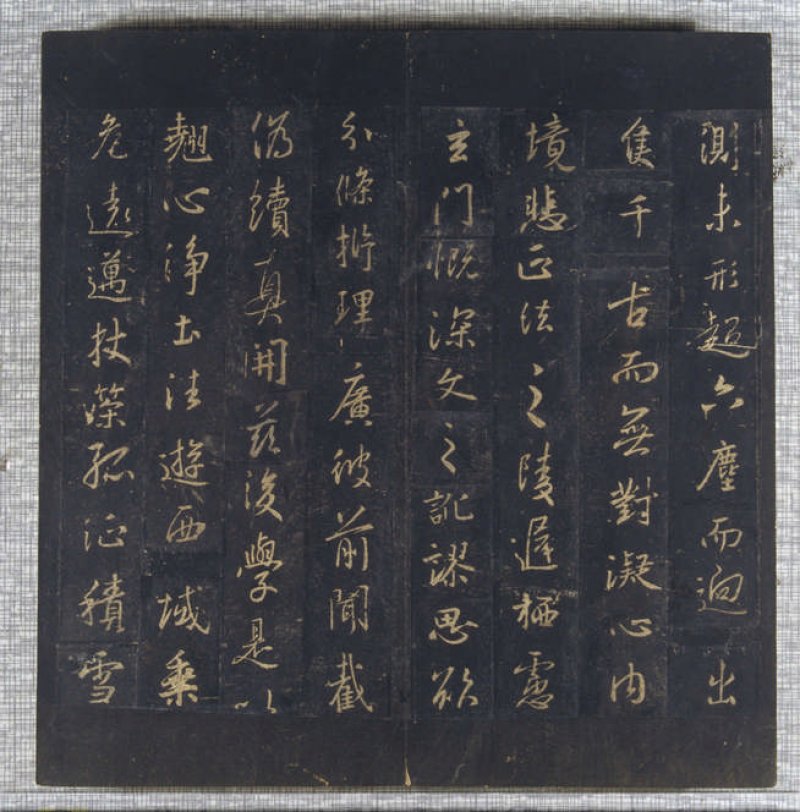 測未形超六塵而迥出
隻千古而無對凝心内
境悲正法之陵遲栖慮
玄門慨深文之訛謬思欲
分條析理廣彼前聞截
偽續真開茲後學是以
翹心淨土往遊西域乘
危遠邁杖策孤征積雪